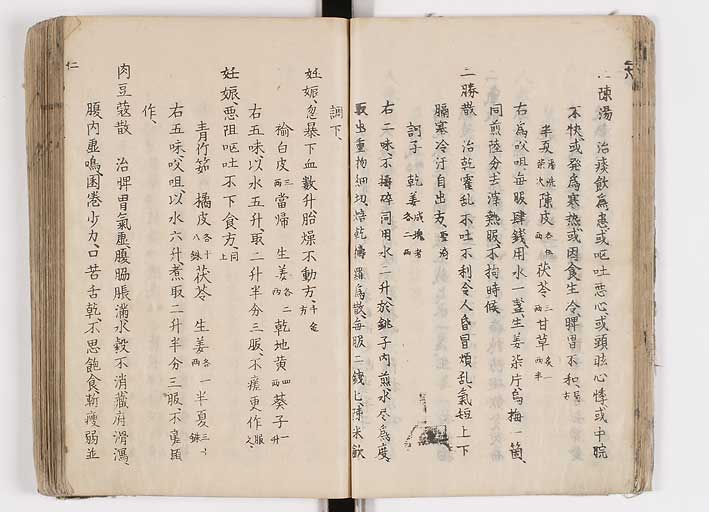 二陳湯　治痰飲為患或嘔吐惡心或頭眩心悸或中脘
不快或発為寒熱或因食生冷脾胃不和
半夏 陳皮 茯苓 三両 甘草 炙一両半
右為㕮咀每服肆錢用水一盞生姜柒片烏梅一箇
同煎陸分去滓熱服不拘時候
二勝散　治乾霍乱不吐不利令人昏冒煩乱氣短上下
膈塞冷汗自出方
訶子　乾姜 各二両
右二味不擣碎同用水二升於銚子内煎水尽為度
取出重物細切焙乾擣羅為散每服二錢匕陳米飲
調下
妊娠忽暴下血數升胎燥不動方 千金方
榆白皮 三両 當帰　生姜 各二両 乾地黄 四両 葵子 一升
右五味以水五升取二升半分三服不瘥更作服之
妊娠惡阻嘔吐不下食方 同上
青竹茹　橘皮 各十八銖 茯苓　生姜 各一両 半夏 三十銖
右五味㕮咀以水六升煮取二升半分三服不瘥頻
作
肉豆蔻散　治脾胃氣虚腹脇脹満水穀不消藏府滑瀉
腹内虚鳴困倦少力口苦舌乾不思飽食漸瘦弱並
仁